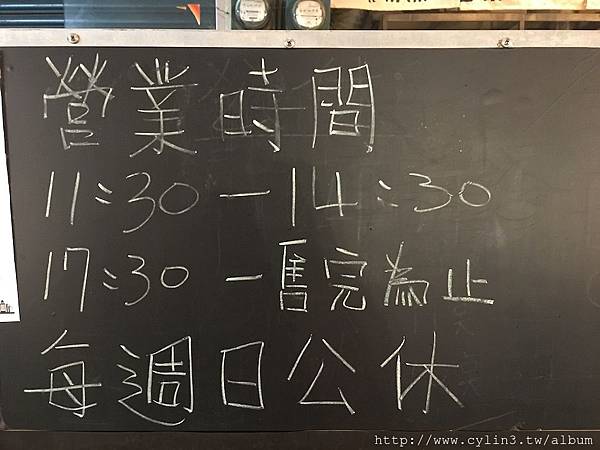 營業時間
11:30－14:30
17:30－售完為止
每週日公休
http://www.cylin3.tw/album